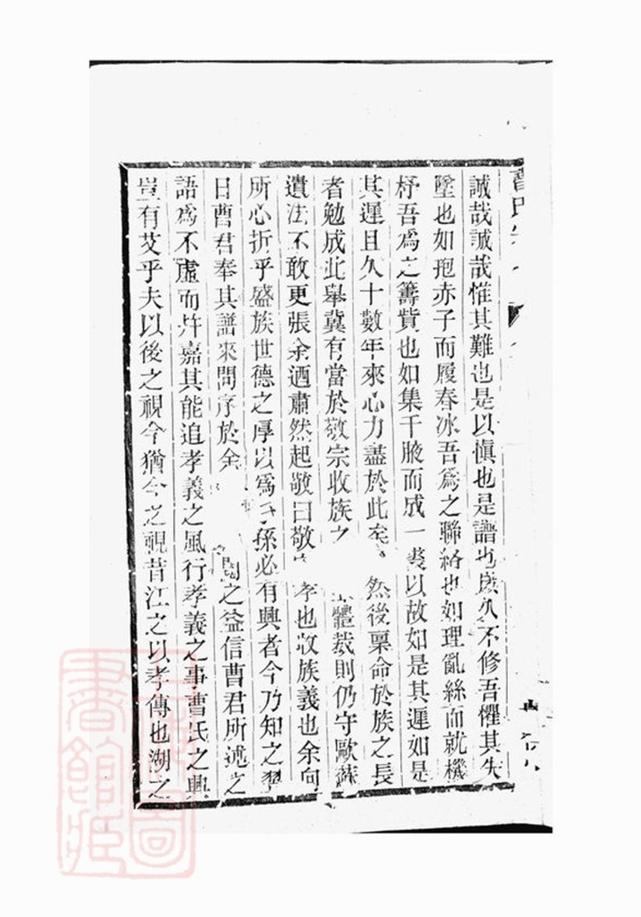 曹氏
誠哉誠哉惟其難也是以愼也是譜也歷久不修吾懼其失
墜也如抱赤子而履春冰吾爲之聯絡也如理亂絲而就機
杼吾爲之籌貲也如集千腋而成一裘以故如是其遲如是
其遲且久十數年來心力盡於此矣 然後稟命於族之長
者勉成此舉冀有當於敬宗收族之 體裁則仍守歐蘇
遺法不敢更張余迺肅然起敬曰敬 孝也收族義也余向
所心折乎盛族世德之厚以爲子孫必有興者今乃知之翌
日曹君奉其譜來問序於余 閱之益信曹君所述之
語爲不虛而幷嘉其能追孝義之風行孝義之事曹氏之興
豈有艾乎夫以後之視今猶今之視昔江之以孝傳也湖之
圖書館藏